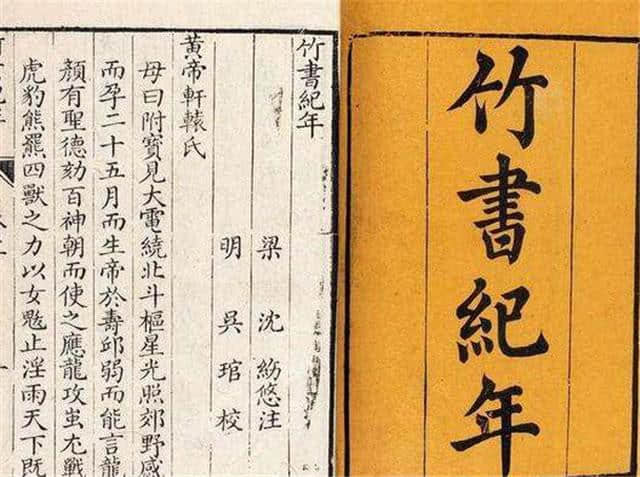 竹書紀年
竹書紀年
梁 沈 紛悠注
明 吳 琯 校
黃帝軒轅氏
母曰附寶見大電繞北斗樞星光照郊野感
而孕二十五月而生帝於壽邱弱而能言龍
顏有聖德劾百神朝而使之應龍攻蚩尤戰
虎豹熊羆四獸之力以女魃止淫雨天下既